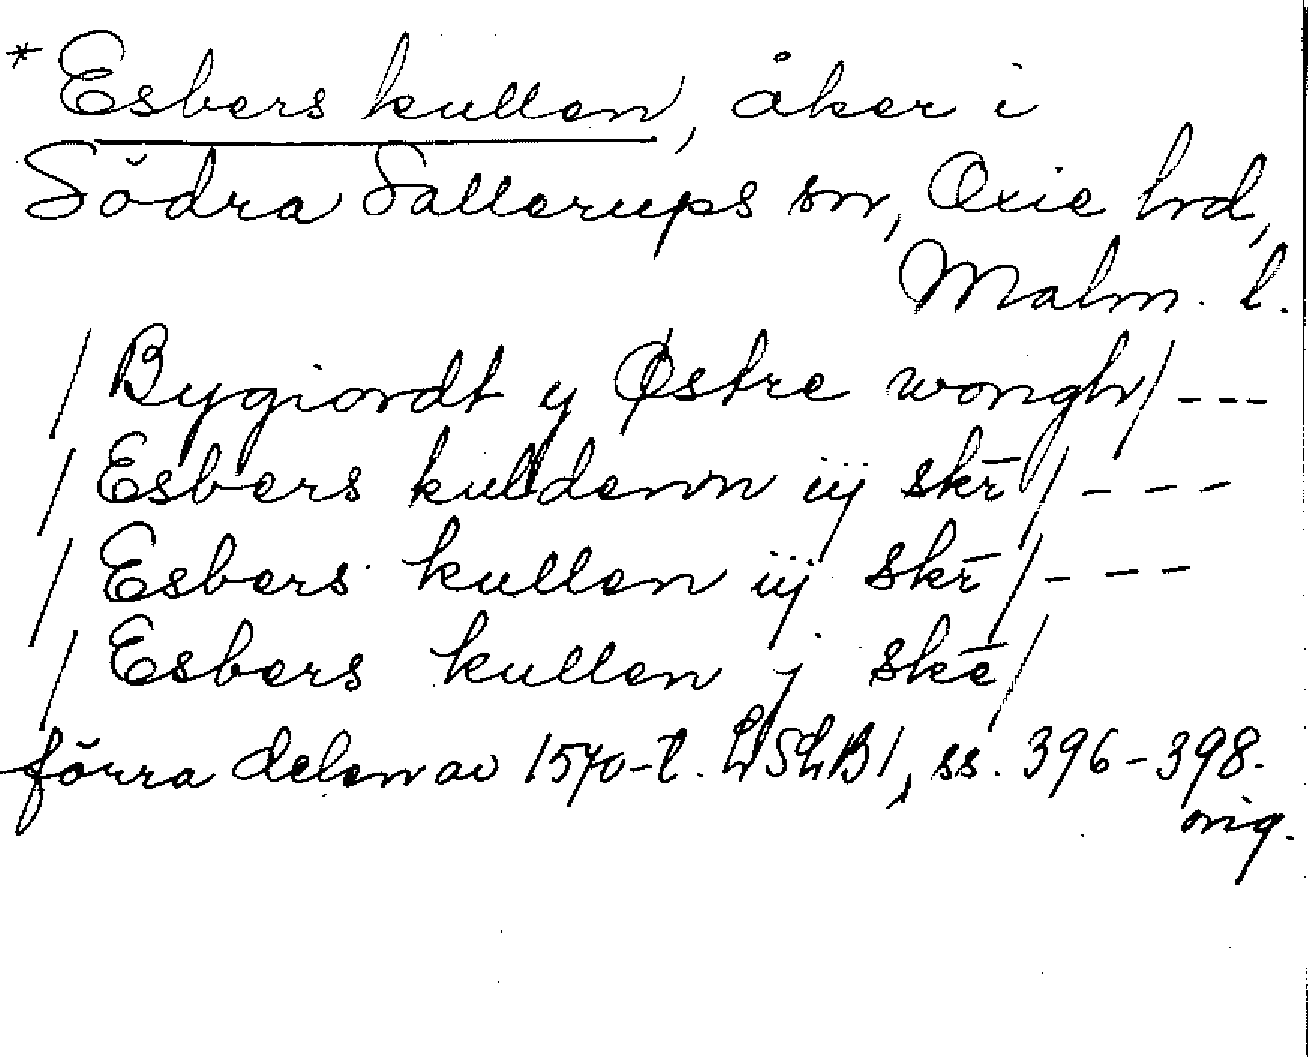 * Esbers kullen, åker i
Södra Sallerups sn, Oxie hrd,
Malm. l.
/ Bygiordt y Østre wongh / - - -
/ Esbers kuldenn iij skr̄ / - - -
/ Esbers kullen iij skr̄ / - - -
/ Esbers kullen j skē /
förra delen av 1570-t. LSLB1, ss. 396-398.
orig.